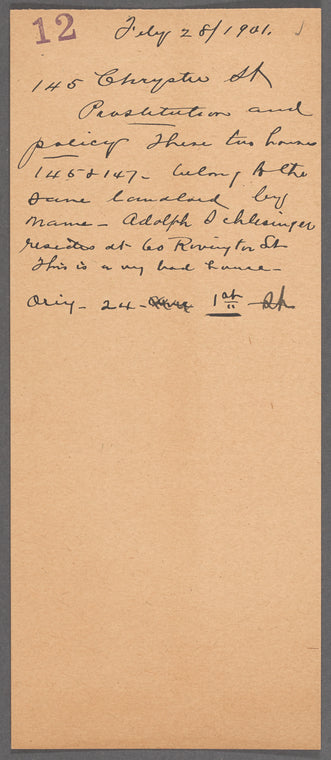 12
Feby 28/1901.
145 Chrystie St
Prostitution and
policy These two houses
145 & 147 - belong to the
same landlord by
name - Adolph Schlesinger
resides at 60 Rivington St
This is a very bad house -
Orig - 24 - 1st St